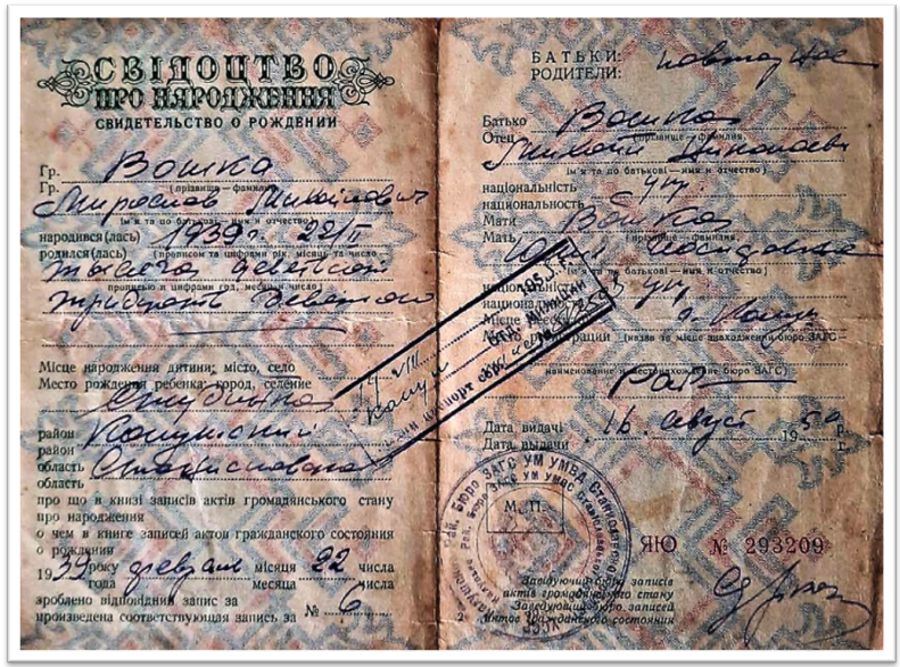 СВІДОЦТВО
ПРО НАРОДЖЕННЯ
СВИДЕТЕЛЬСТВО О РОЖДЕНИИ
Гр. Вошка
Гр. (прізвище — фамилия)
Мирослав Миколайович
(ім'я та по батькові — имя и отчество)
народився (лась) 1939 г. 22/II
родился (лась) (прописом та цифрами рік, місяць та число
тысяча девятсот
прописью и цифрами год, месяц и число)
тридцать девятого
Місце народження дитини: місто, село
Место рождения ребенка: город, селение
район Калушский
район
область Станиславская
область
про що в книзі записів актів громадянського стану
про народження
о чем в книге записей актов гражданского состояния
о рождении
1939 року февраля місяця 22 числа
года месяца числа
зроблено відповідний запис за № 6
произведена соответствующая запись за
БАТЬКИ: повторное
РОДИТЕЛИ:
Батько Вошка
Отец (прізвище — фамилия,
Николаев
ім'я та по батькові — имя и отчество)
національність укр.
национальность
Мати Вошка
Мать (прізвище — фамилия,
Юлия
ім'я та по батькові — имя и отчество)
національність укр
национальность
Місце реєстрації г. Калуш
Место регистрации (назва та місце знаходження бюро ЗАГС —
наименование и местонахождение бюро ЗАГС)
Дата видачі 16 август 195 г.
Дата выдачи р.
М. П.
ЯЮ № 293209
Завідуючий бюро записів
актів громадянського стану
Заведующий бюро записей
актов гражданского состояния
Рай. Бюро ЗАГС УМ УМВД
паспорт сер.